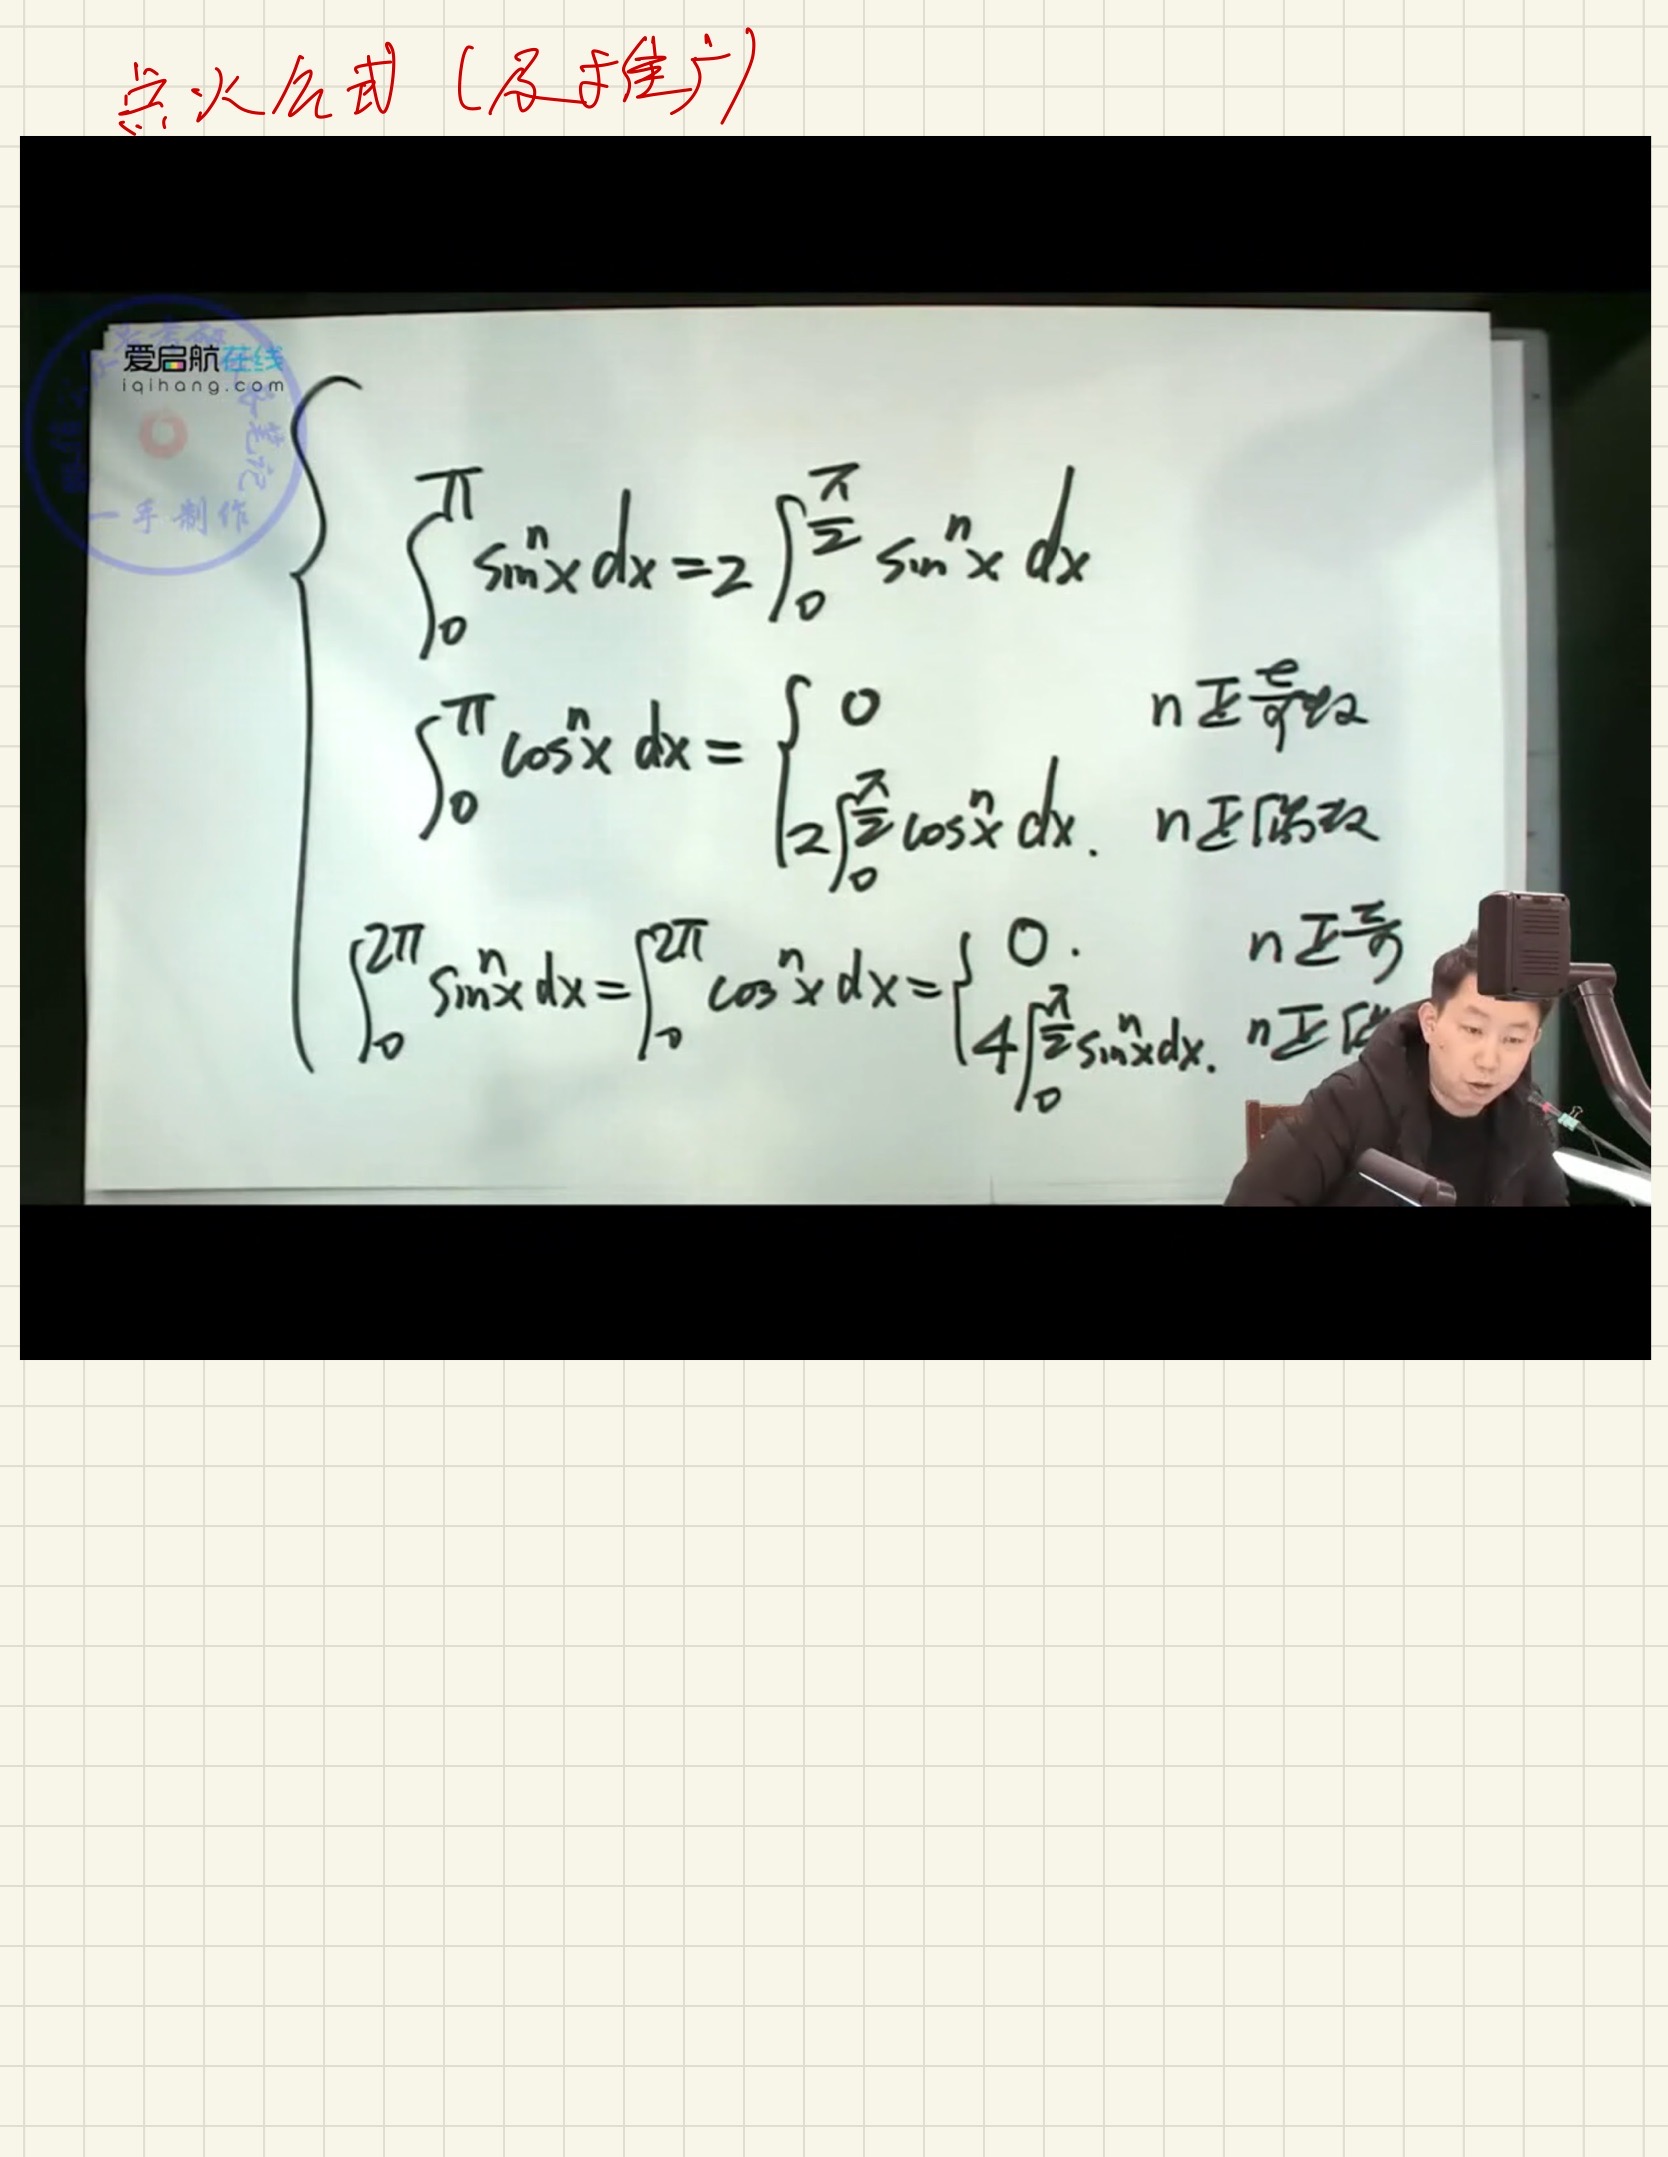 点火公式（及其推广）
爱启航在线
iqihang.com
笔记
一手制作
∫₀^π sinⁿx dx = 2∫₀^(π/2) sinⁿx dx
∫₀^π cosⁿx dx = { 0 n正奇数
2∫₀^(π/2) cosⁿx dx. n正偶数
∫₀^2π sinⁿx dx = ∫₀^2π cosⁿx dx = { 0. n正奇
4∫₀^(π/2) sinⁿx dx. n正偶